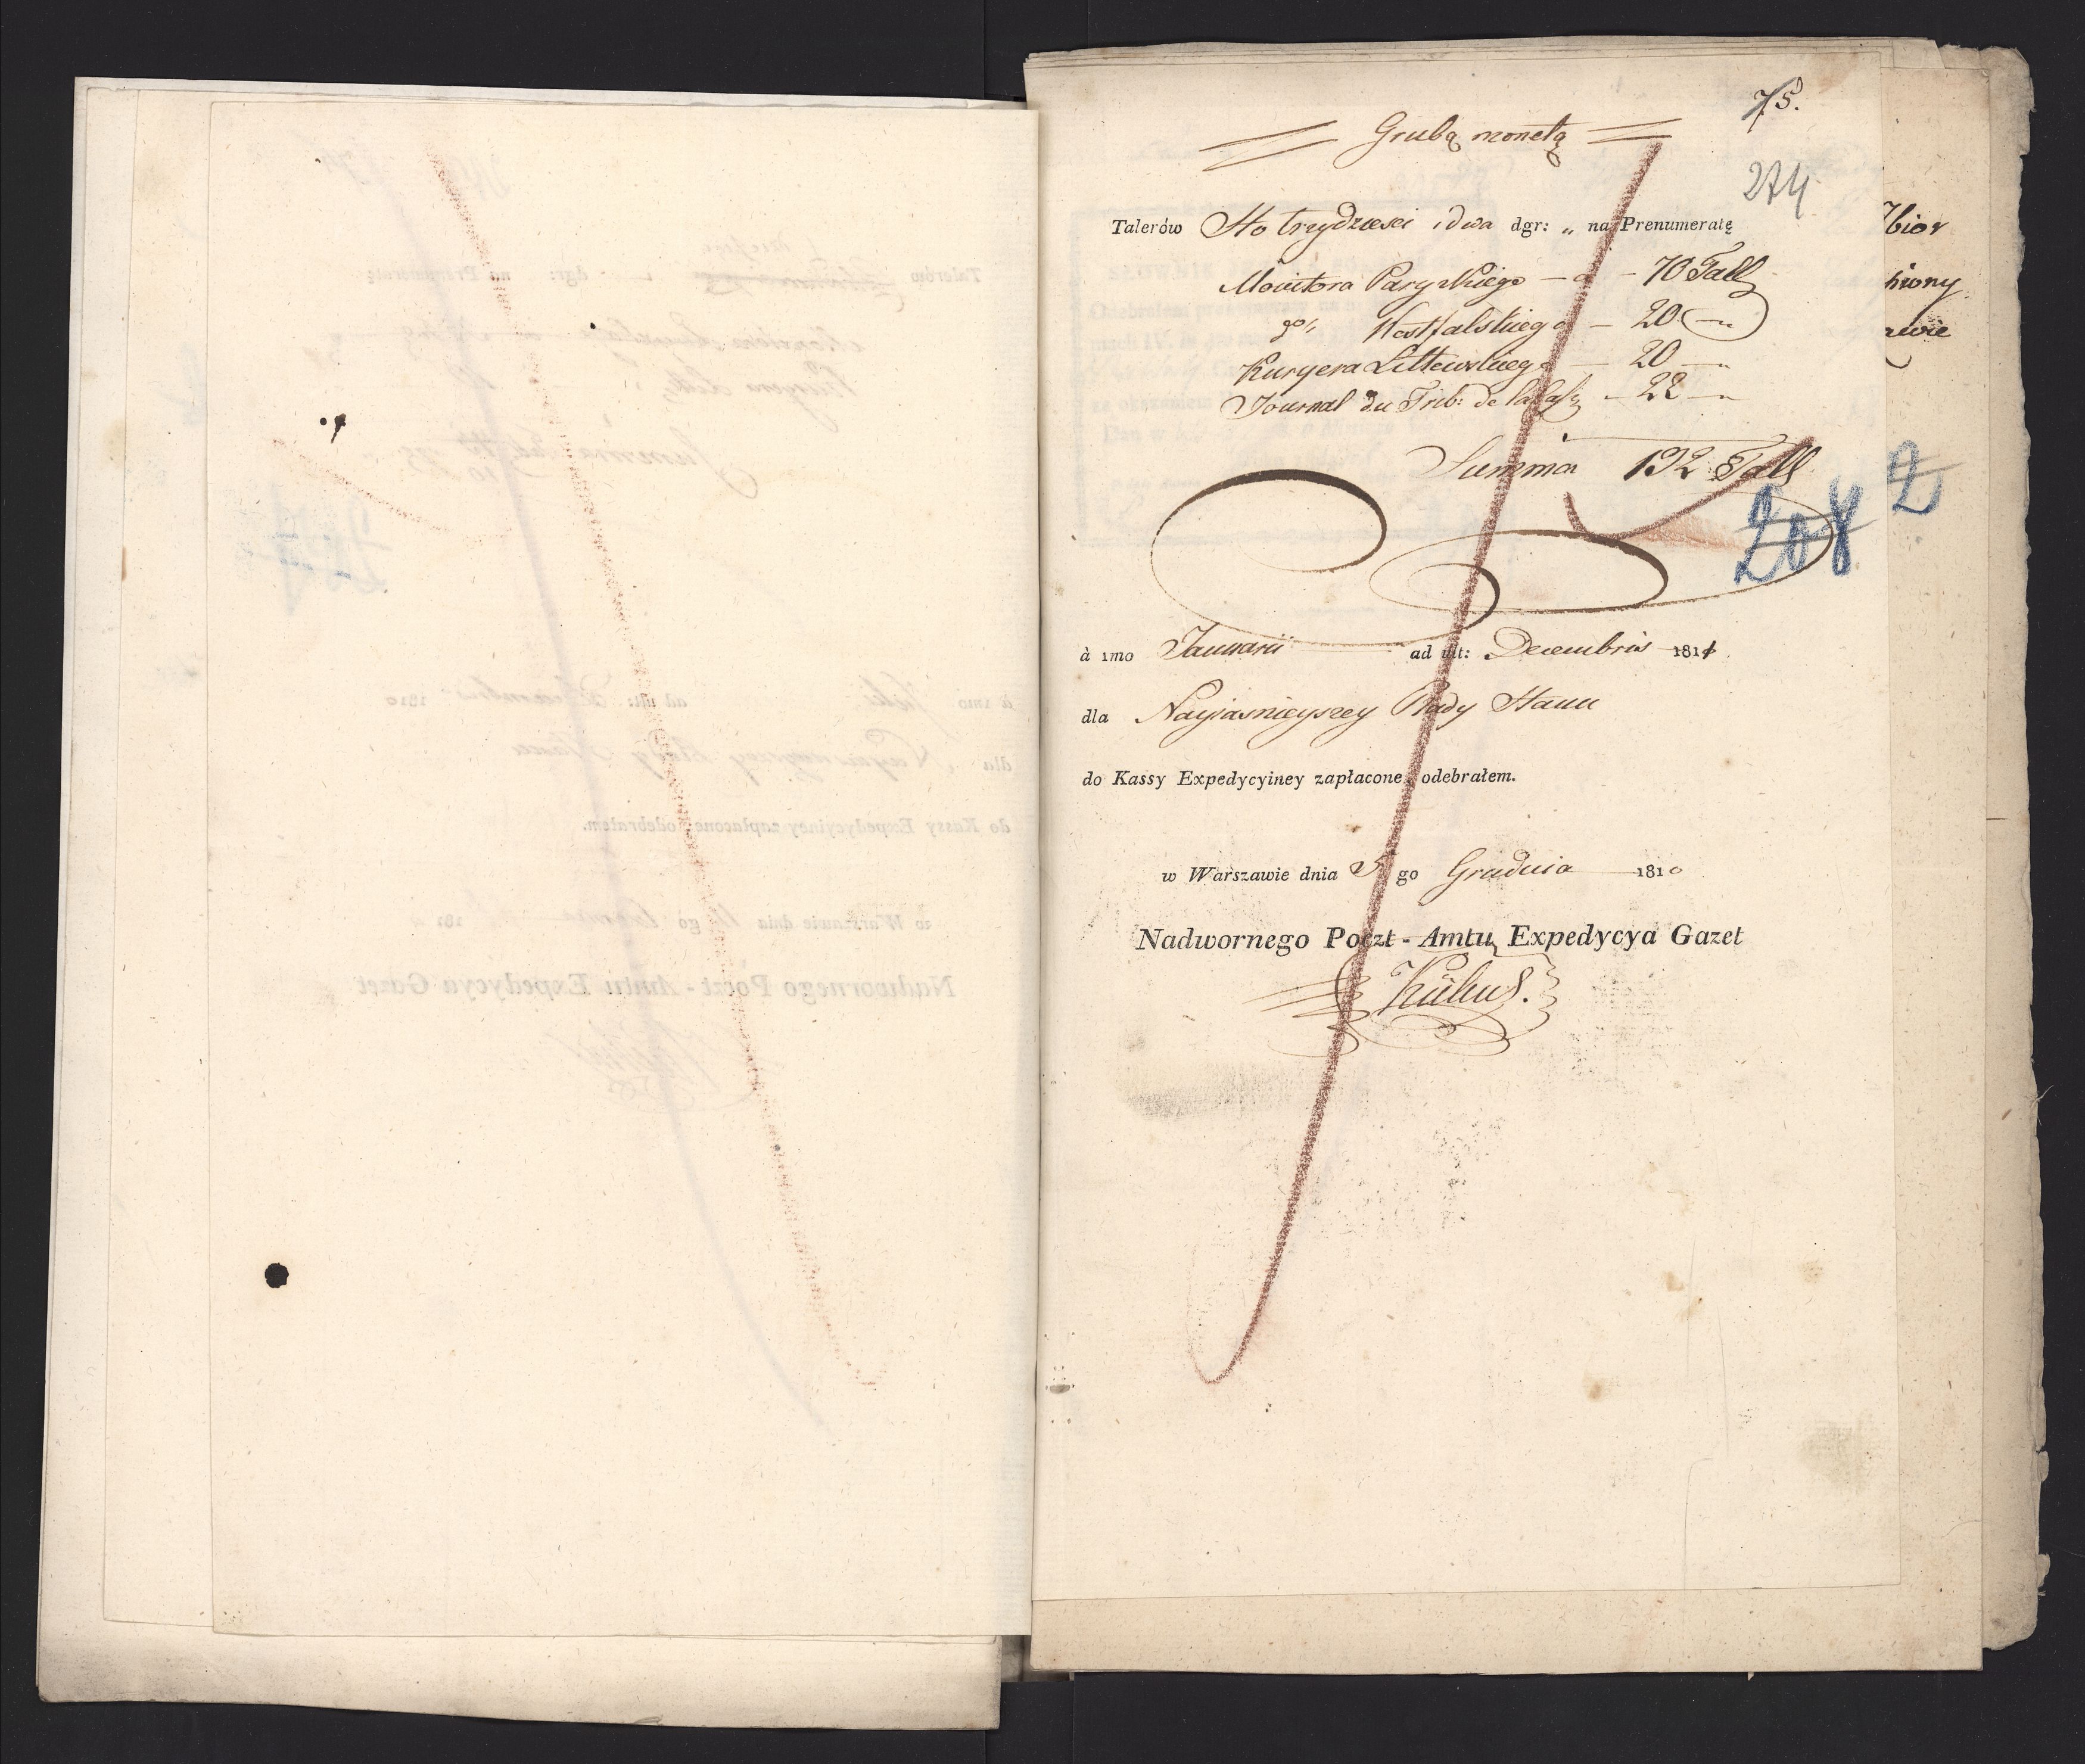 75.
= Grubą monetą =
274
Talerów Sto trzydzieści i dwa dgr: „ na Prenumeratę
Monitora Paryzkiego — a — 70 Tall
go „ Westfalskiego — 20 —„
Kuryera Littewskiego — 20 —„
Journal du Trib: de la Cass — 22 —„
Summa 132 Tall
208
2
à 1mo Januarii ad ult: Decembris 1811
dla Nayjasnieyszey Rady Stanu
do Kassy Expedycyiney zapłacone, odebrałem.
w Warszawie dnia 5 go Grudnia 1810
Nadwornego Poczt - Amtu Expedycya Gazet
Zbior
awie